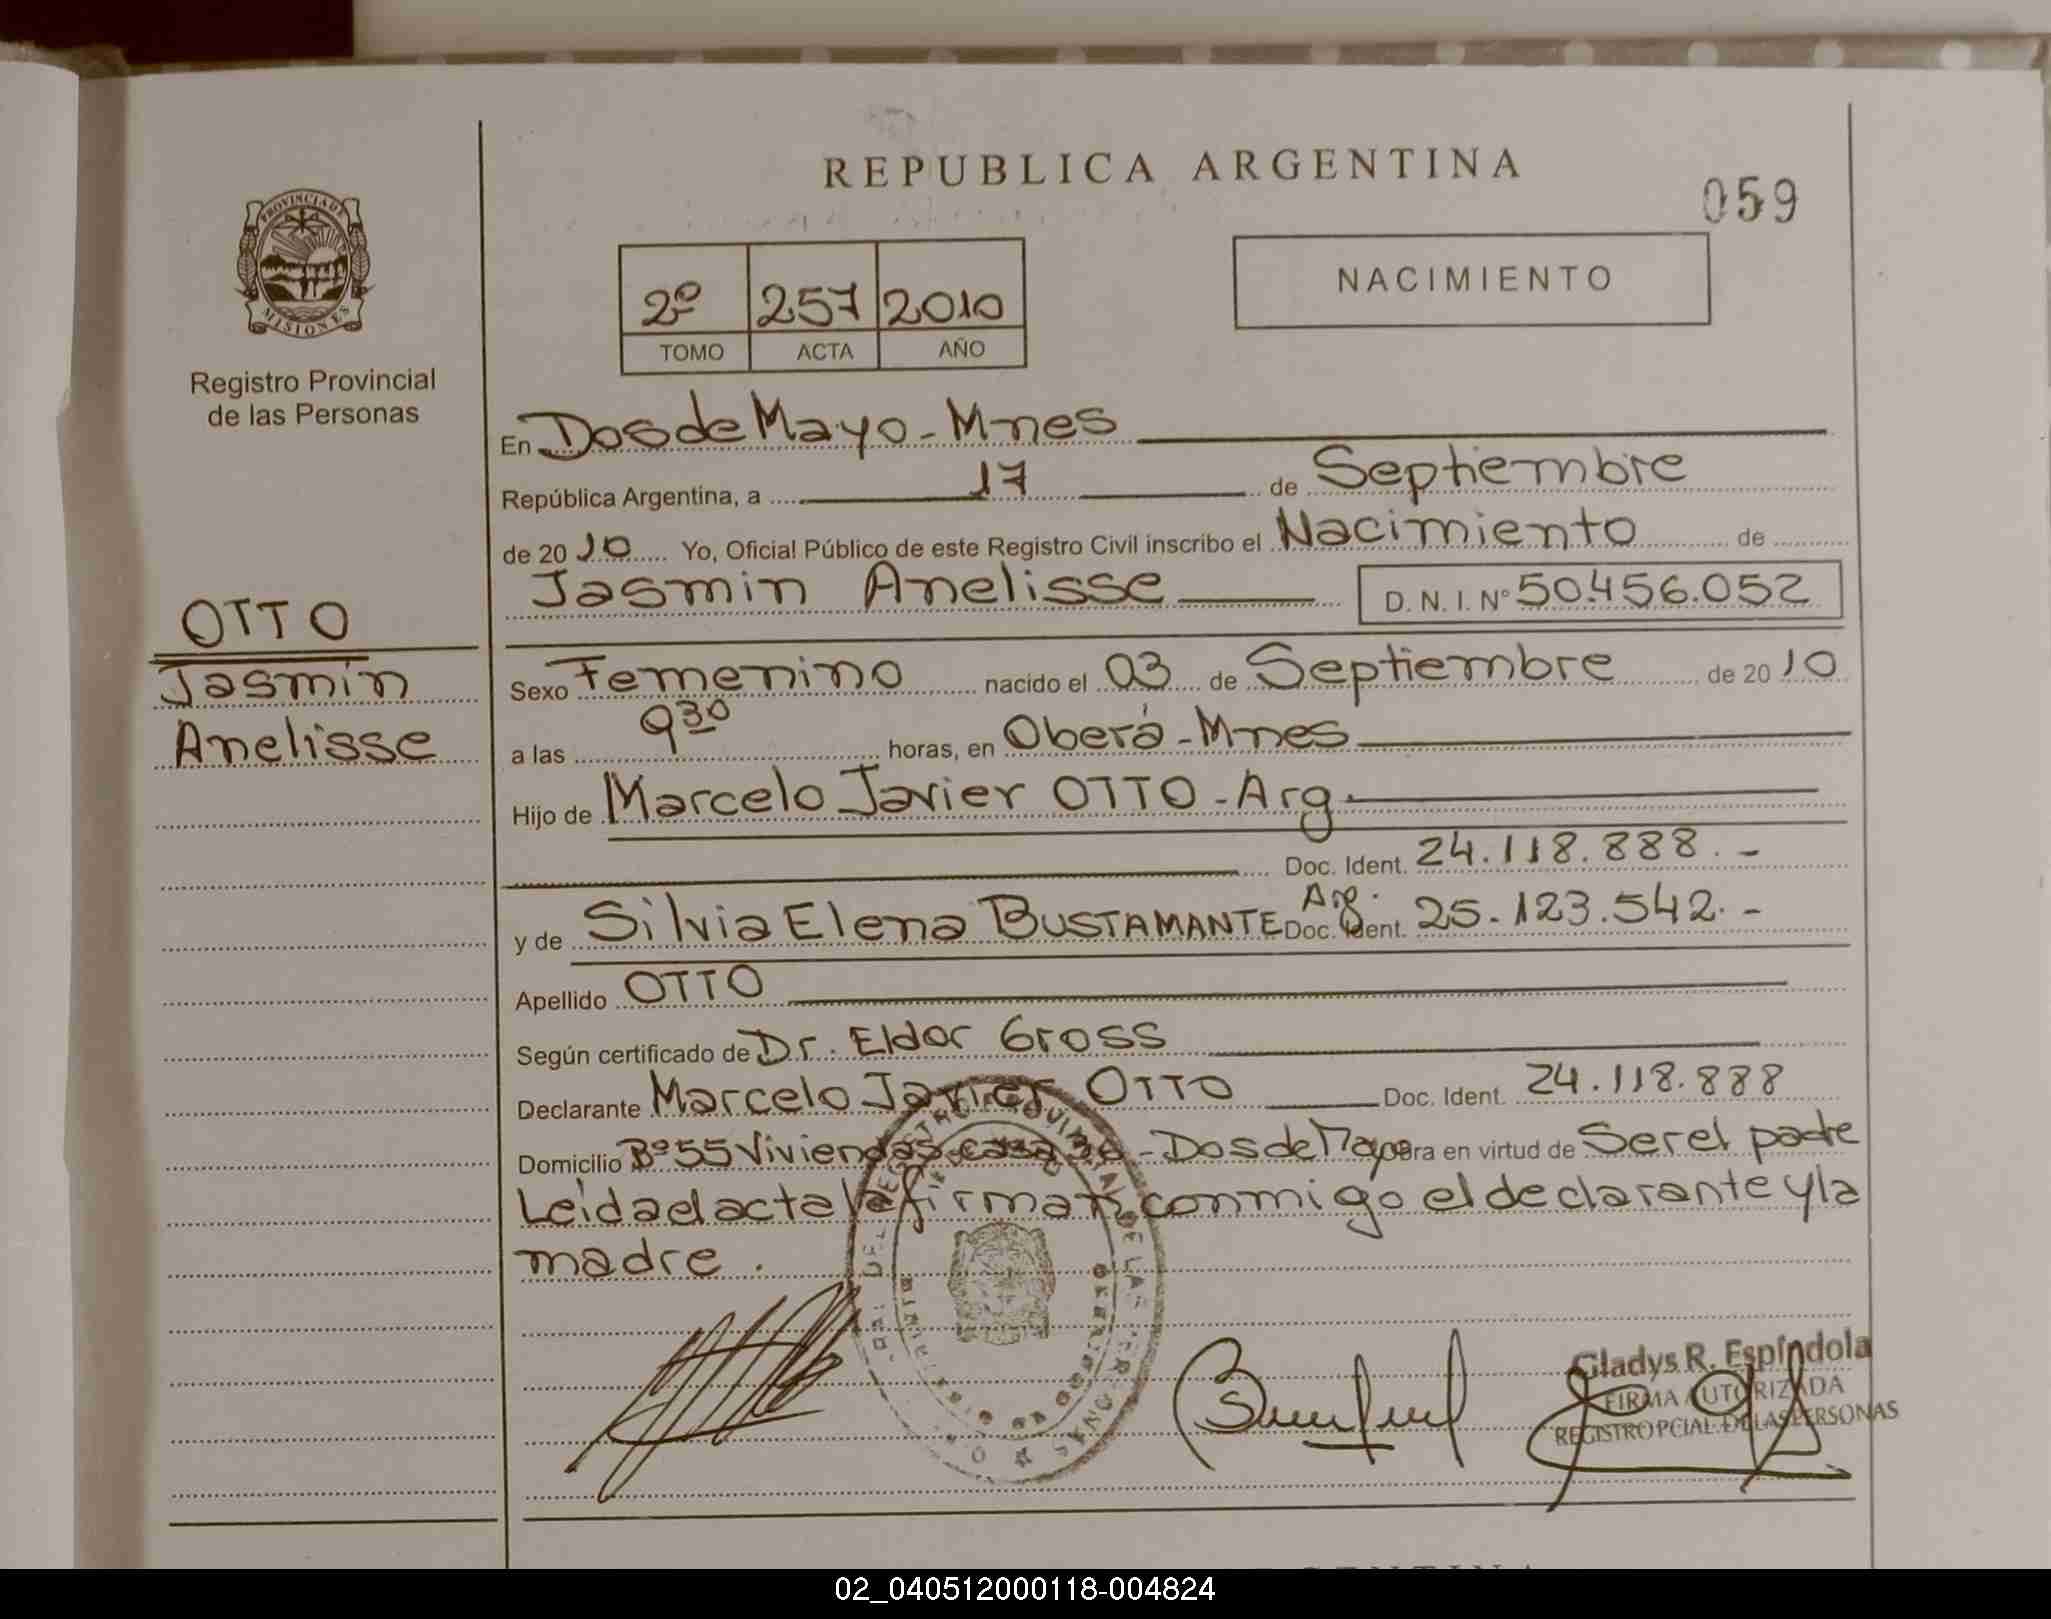 REPUBLICA ARGENTINA
059
PROVINCIA DE
MISIONES
Registro Provincial
de las Personas
2º 257 2010
TOMO ACTA AÑO
NACIMIENTO
En Dos de Mayo - Mnes
República Argentina, a 17 de Septiembre
de 20 10 Yo, Oficial Público de este Registro Civil inscribo el Nacimiento de
Jasmin Anelisse D. N. I. Nº 50.456.052
OTTO
Jasmin
Anelisse
Sexo Femenino nacido el 03 de Septiembre de 20 10
a las 9 30 horas, en Oberá - Mnes
Hijo de Marcelo Javier OTTO - Arg.
Doc. Ident. 24.118.888.-
y de Silvia Elena BUSTAMANTE Arg. Doc. Ident. 25.123.542.-
Apellido OTTO
Según certificado de Dr. Eldor Gross
Declarante Marcelo Javier OTTO Doc. Ident. 24.118.888
Domicilio Bº 55 Viviendas casa - Dos de Mayo en virtud de Ser el padre
Leida el acta la firman conmigo el declarante y la
madre.
Gladys R. Espíndola
FIRMA AUTORIZADA
REGISTRO PCIAL. DE LAS PERSONAS
02_040512000118-004824